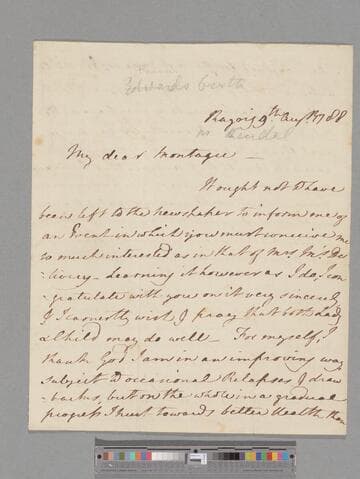 Edwards birth
9th Augt 1788
My dear Montagu —
It ought not to have
been left to the newspaper to inform me of
an Event in which you must conceive me
so much interested as in that of Mrs. Ms. De
-livery — Learning it however as I do, I con
-gratulate with you on it very sincerely
& I earnestly wish & pray that both Lady
& Child may do well — For myself, I
thank God I am in an improving way,
subject to occasional Relapses & draw
-backs, but on the whole in a gradual
progress I trust towards better Health, than